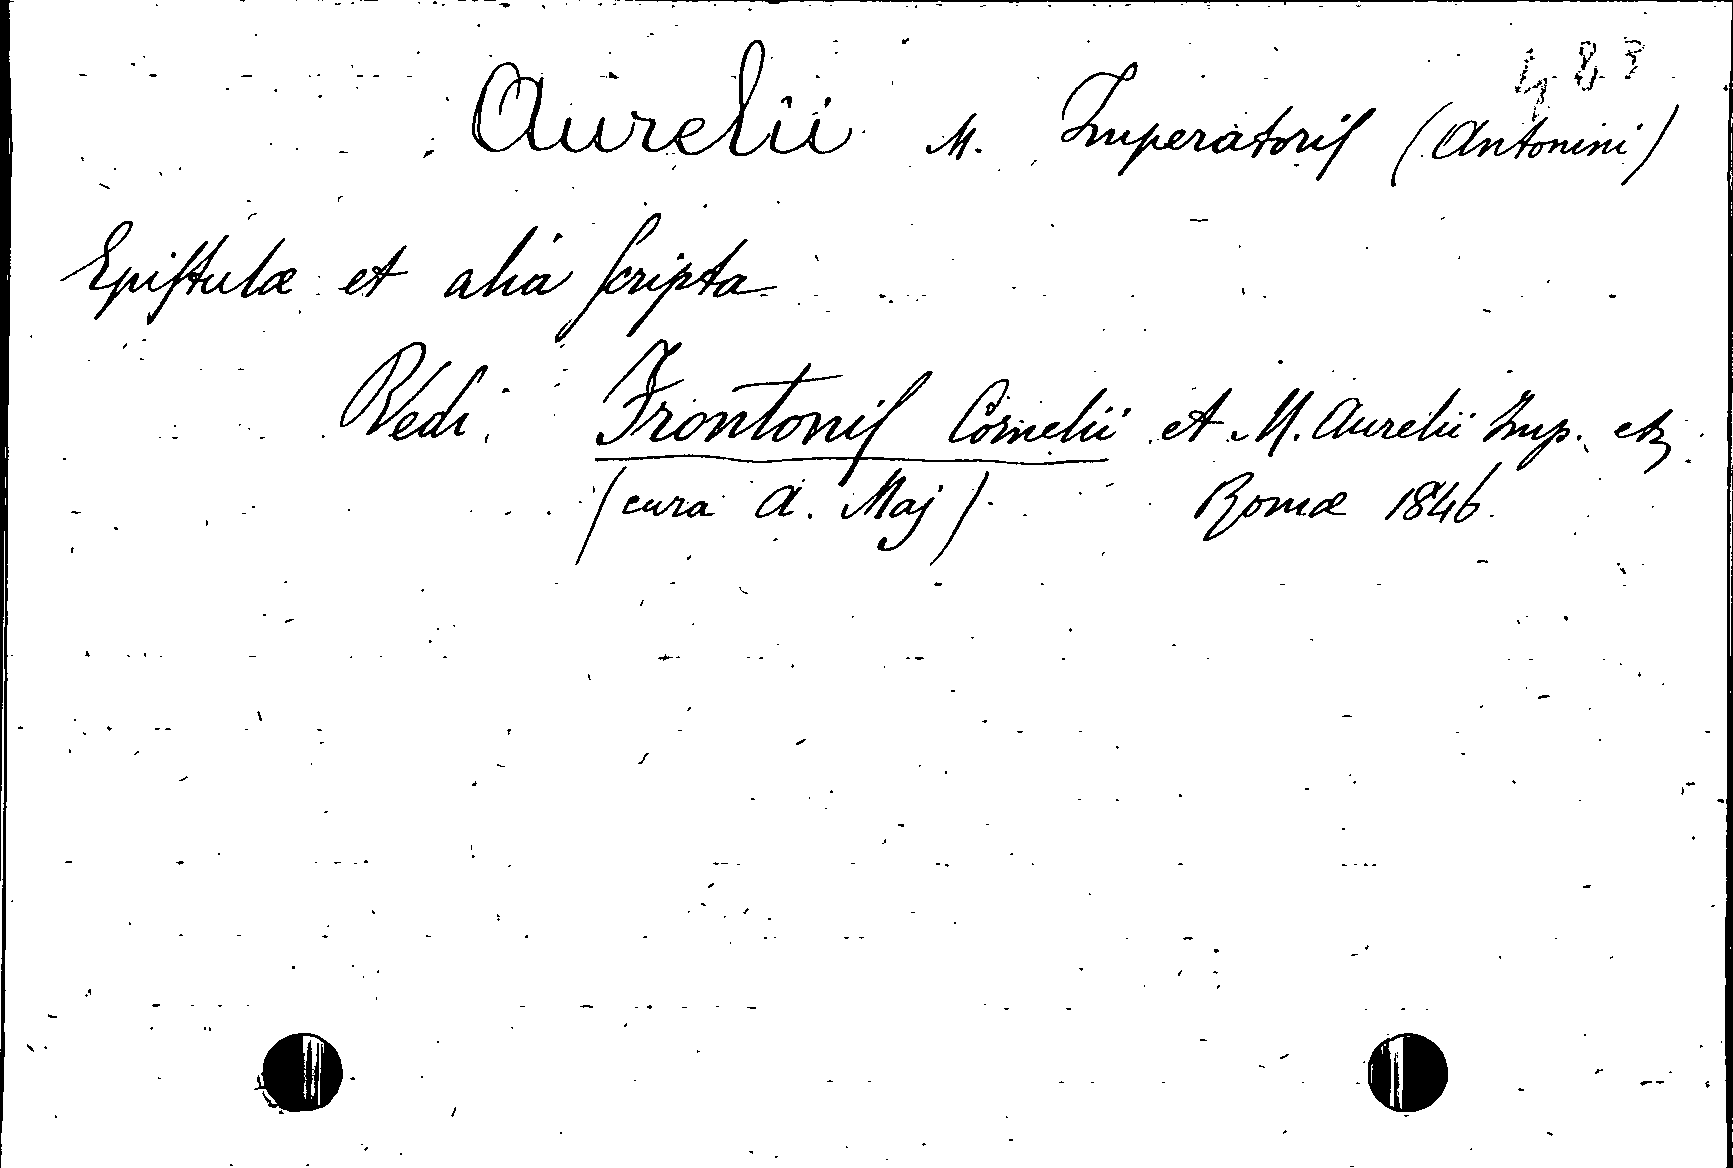 483
Aurelii M. Imperatoris (Antonini)
Epistulæ et alia scripta
Vedi Frontonis Cornelii et M. Aurelii Imp. etc
(cura A. Maj) Romæ 1846.